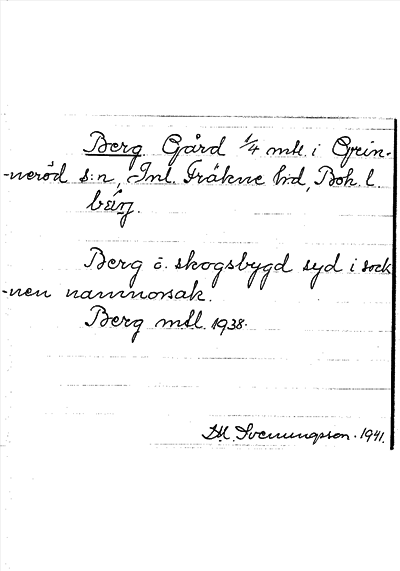 Berg Gård 1/4 mtl. i Grin-
-neröd s:n, Inl. Fräkne h:d, Boh. l.
Berg ö. skogsbygd syd i sock
-nen namnorsak.
Berg mtl. 1938.
Svenungsson. 1941.